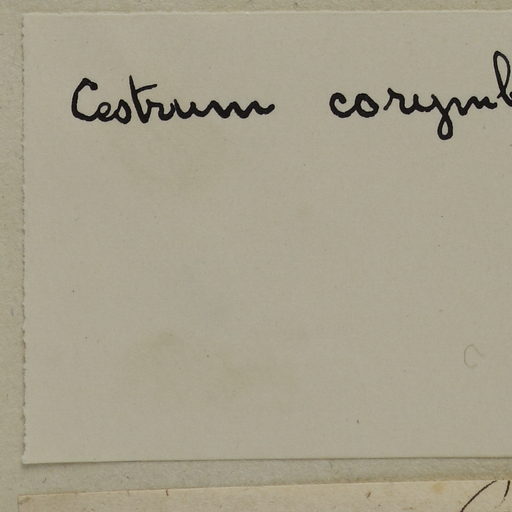 Cestrum corymb